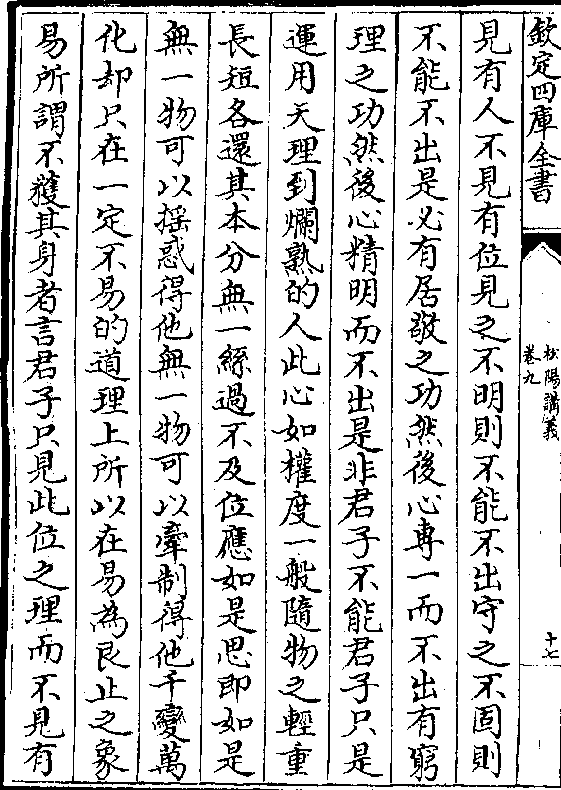 欽定四庫全書
松陽講義
卷九
十七
見有人不見有位見之不明則不能不出守之不固則
不能不出是必有居敬之功然後心專一而不出有窮
理之功然後心精明而不出是非君子不能君子只是
運用天理到爛熟的人此心如權度一般隨物之輕重
長短各還其本分無一絲過不及位應如是思即如是
無一物可以揺惑得他無一物可以牽制得他千變萬
化却只在一定不易的道理上所以在易為艮止之象
易所謂不獲其身者言君子只見此位之理而不見有